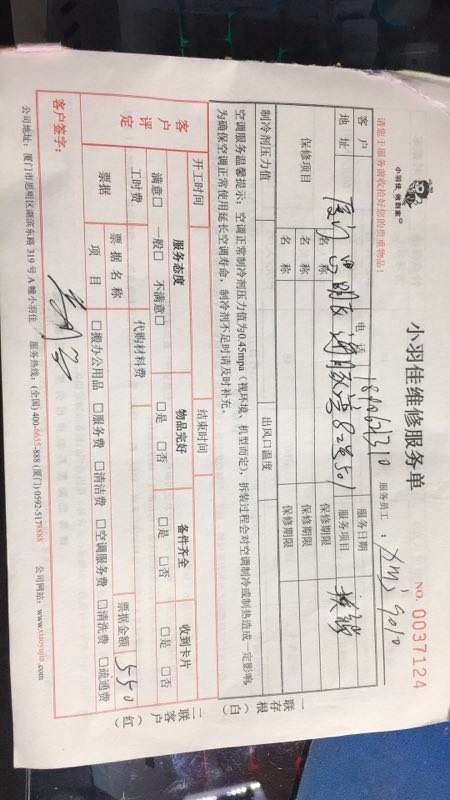 小羽佳 收到家
小羽佳维修服务单
NO. 0037124
请您于服务前收拾好您的贵重物品:
服务员工:
客户
电话
服务日期
地址
厦门思明区
服务项目
换锁
保修项目
名称
保修期限
名称
保修期限
名称
保修期限
制冷剂压力值
出风口温度
空调服务温馨提示:空调正常制冷剂压力值为0.45mpa(视环境、机型而定),拆装过程会对空调制冷或制热造成一定影响,
为确保空调正常使用延长空调寿命,制冷剂不足时请及时补充。
一联存根(白)
二联客户(红)
开工时间
结束时间
客户评定
服务态度
物品完好
备件齐全
收到卡片
满意□ 一般□ 不满意□
□是 □否
□是 □否
□是 □否
工时费
代购材料费
票据
票据名称
票据金额
550
项目
□搬办公用品 □服务费 □清洁费 □空调服务费 □清洗费 □疏通费
客户签字:
公司地址:厦门市思明区湖滨东路319号A幢小羽佳
服务热线:(全国)400-6655-888(厦门)0592-5178888
公司网站:www.xiaoyujia.com